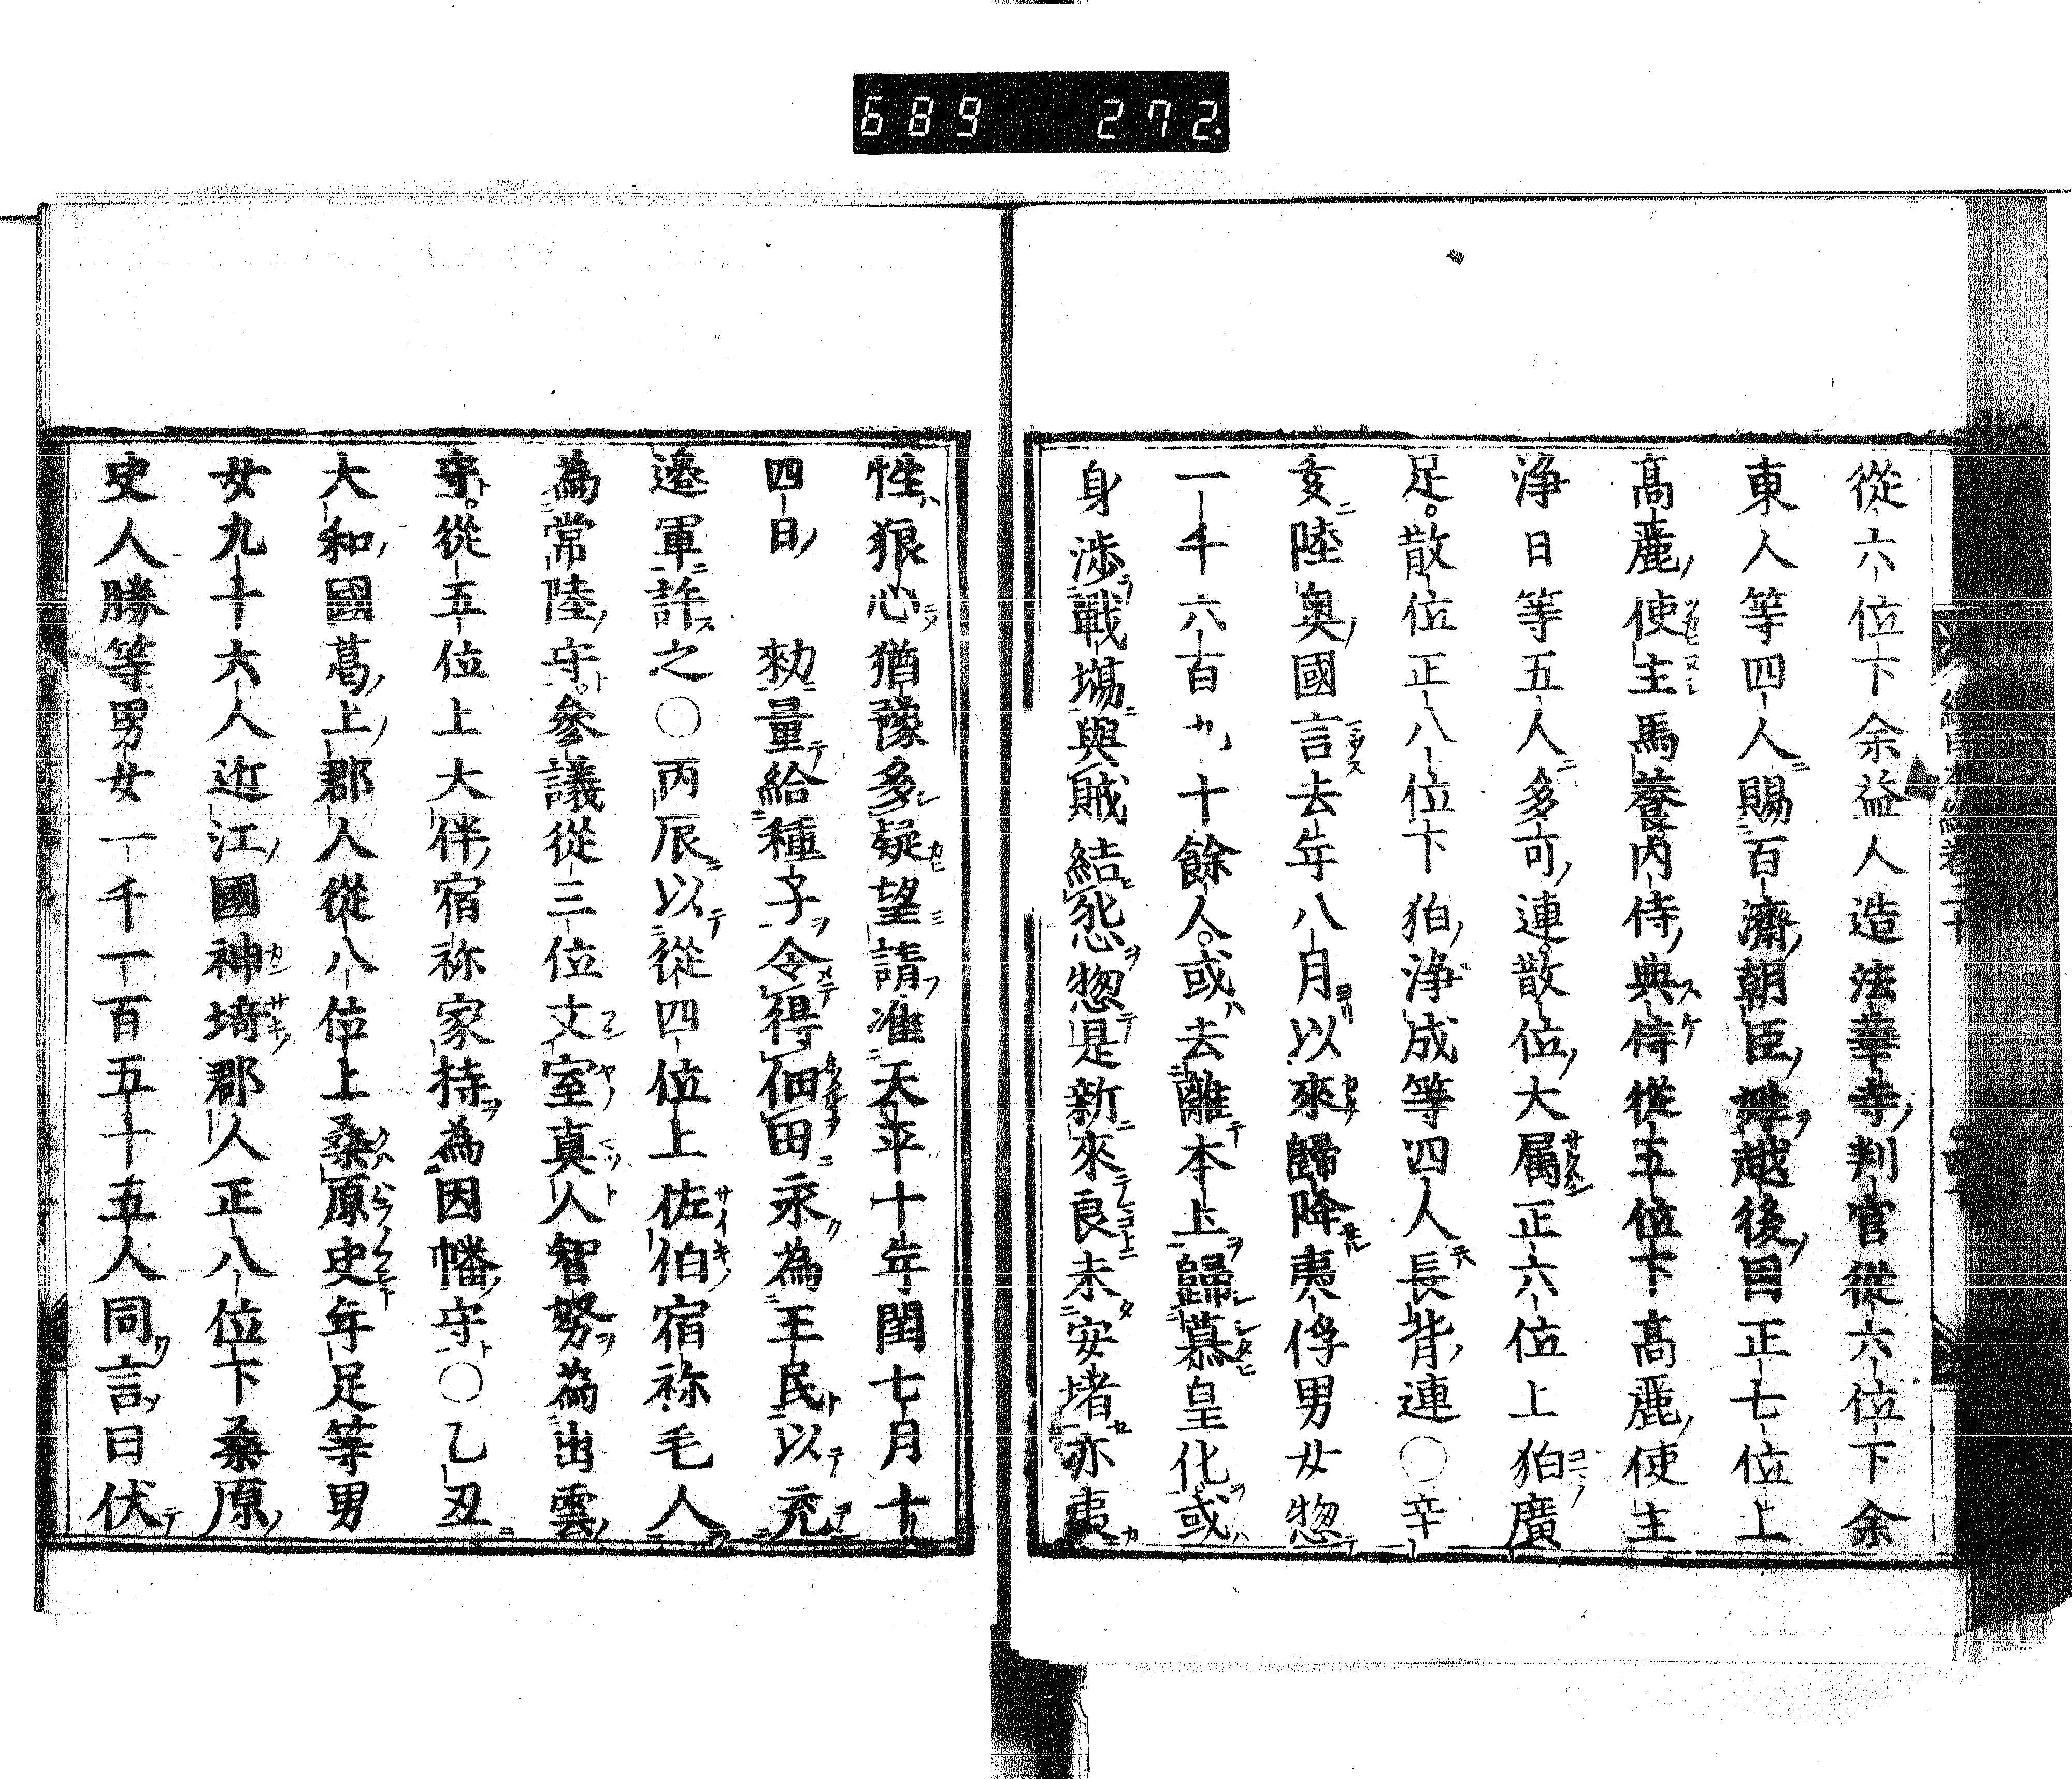 689 272.
從六位下余益人造法華寺判官從六位下余
東人等四人賜百濟朝臣越後目正七位上
髙麗使主馬養内侍典侍從五位下髙麗使主
淨日等五人多可連散位大属正六位上狛廣
足散位正八位下狛淨成等四人長背連〇辛
亥陸奥國言去年八月以來歸降夷俘男女惣
一千六百九十餘人或去離本土歸慕皇化或
身渉戰場與賊結怨惣是新來良未安堵亦夷
性狼心猶豫多疑望請准天平十年閏七月十
四日 勑量給種子令得佃田永為王民以充
邊軍許之〇丙辰以從四位上佐伯宿祢毛人
為常陸守參議從三位文室真人智努為出雲
守從五位上大伴宿祢家持為因幡守〇乙丑
大和國葛上郡人從八位上桑原史年足等男
女九十六人近江國神埼郡人正八位下桑原
史人勝等男女一千一百五十五人同言曰伏